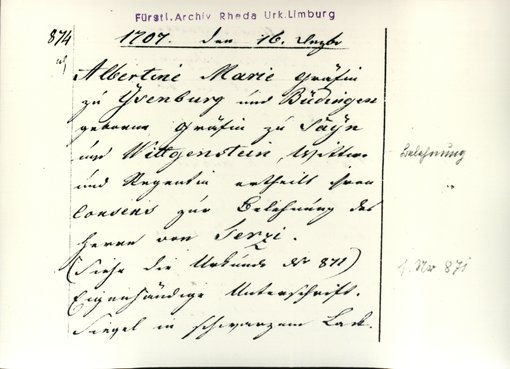 Fürstl. Archiv Rheda Urk. Limburg
874
1707. den 16. Dezbr
Albertine Marie Gräfin
zu Ysenburg und Büdingen
geborene Gräfin zu Sayn
und Wittgenstein, Wittwe
und Regentin ertheilt ihren
Consens zur Belehnung des
Herrn von Terzi.
(Siehe die Urkunde No 871)
Eigenhändige Unterschrift.
Siegel in schwarzem Lack.
Belehnung
"
s. Nr 871